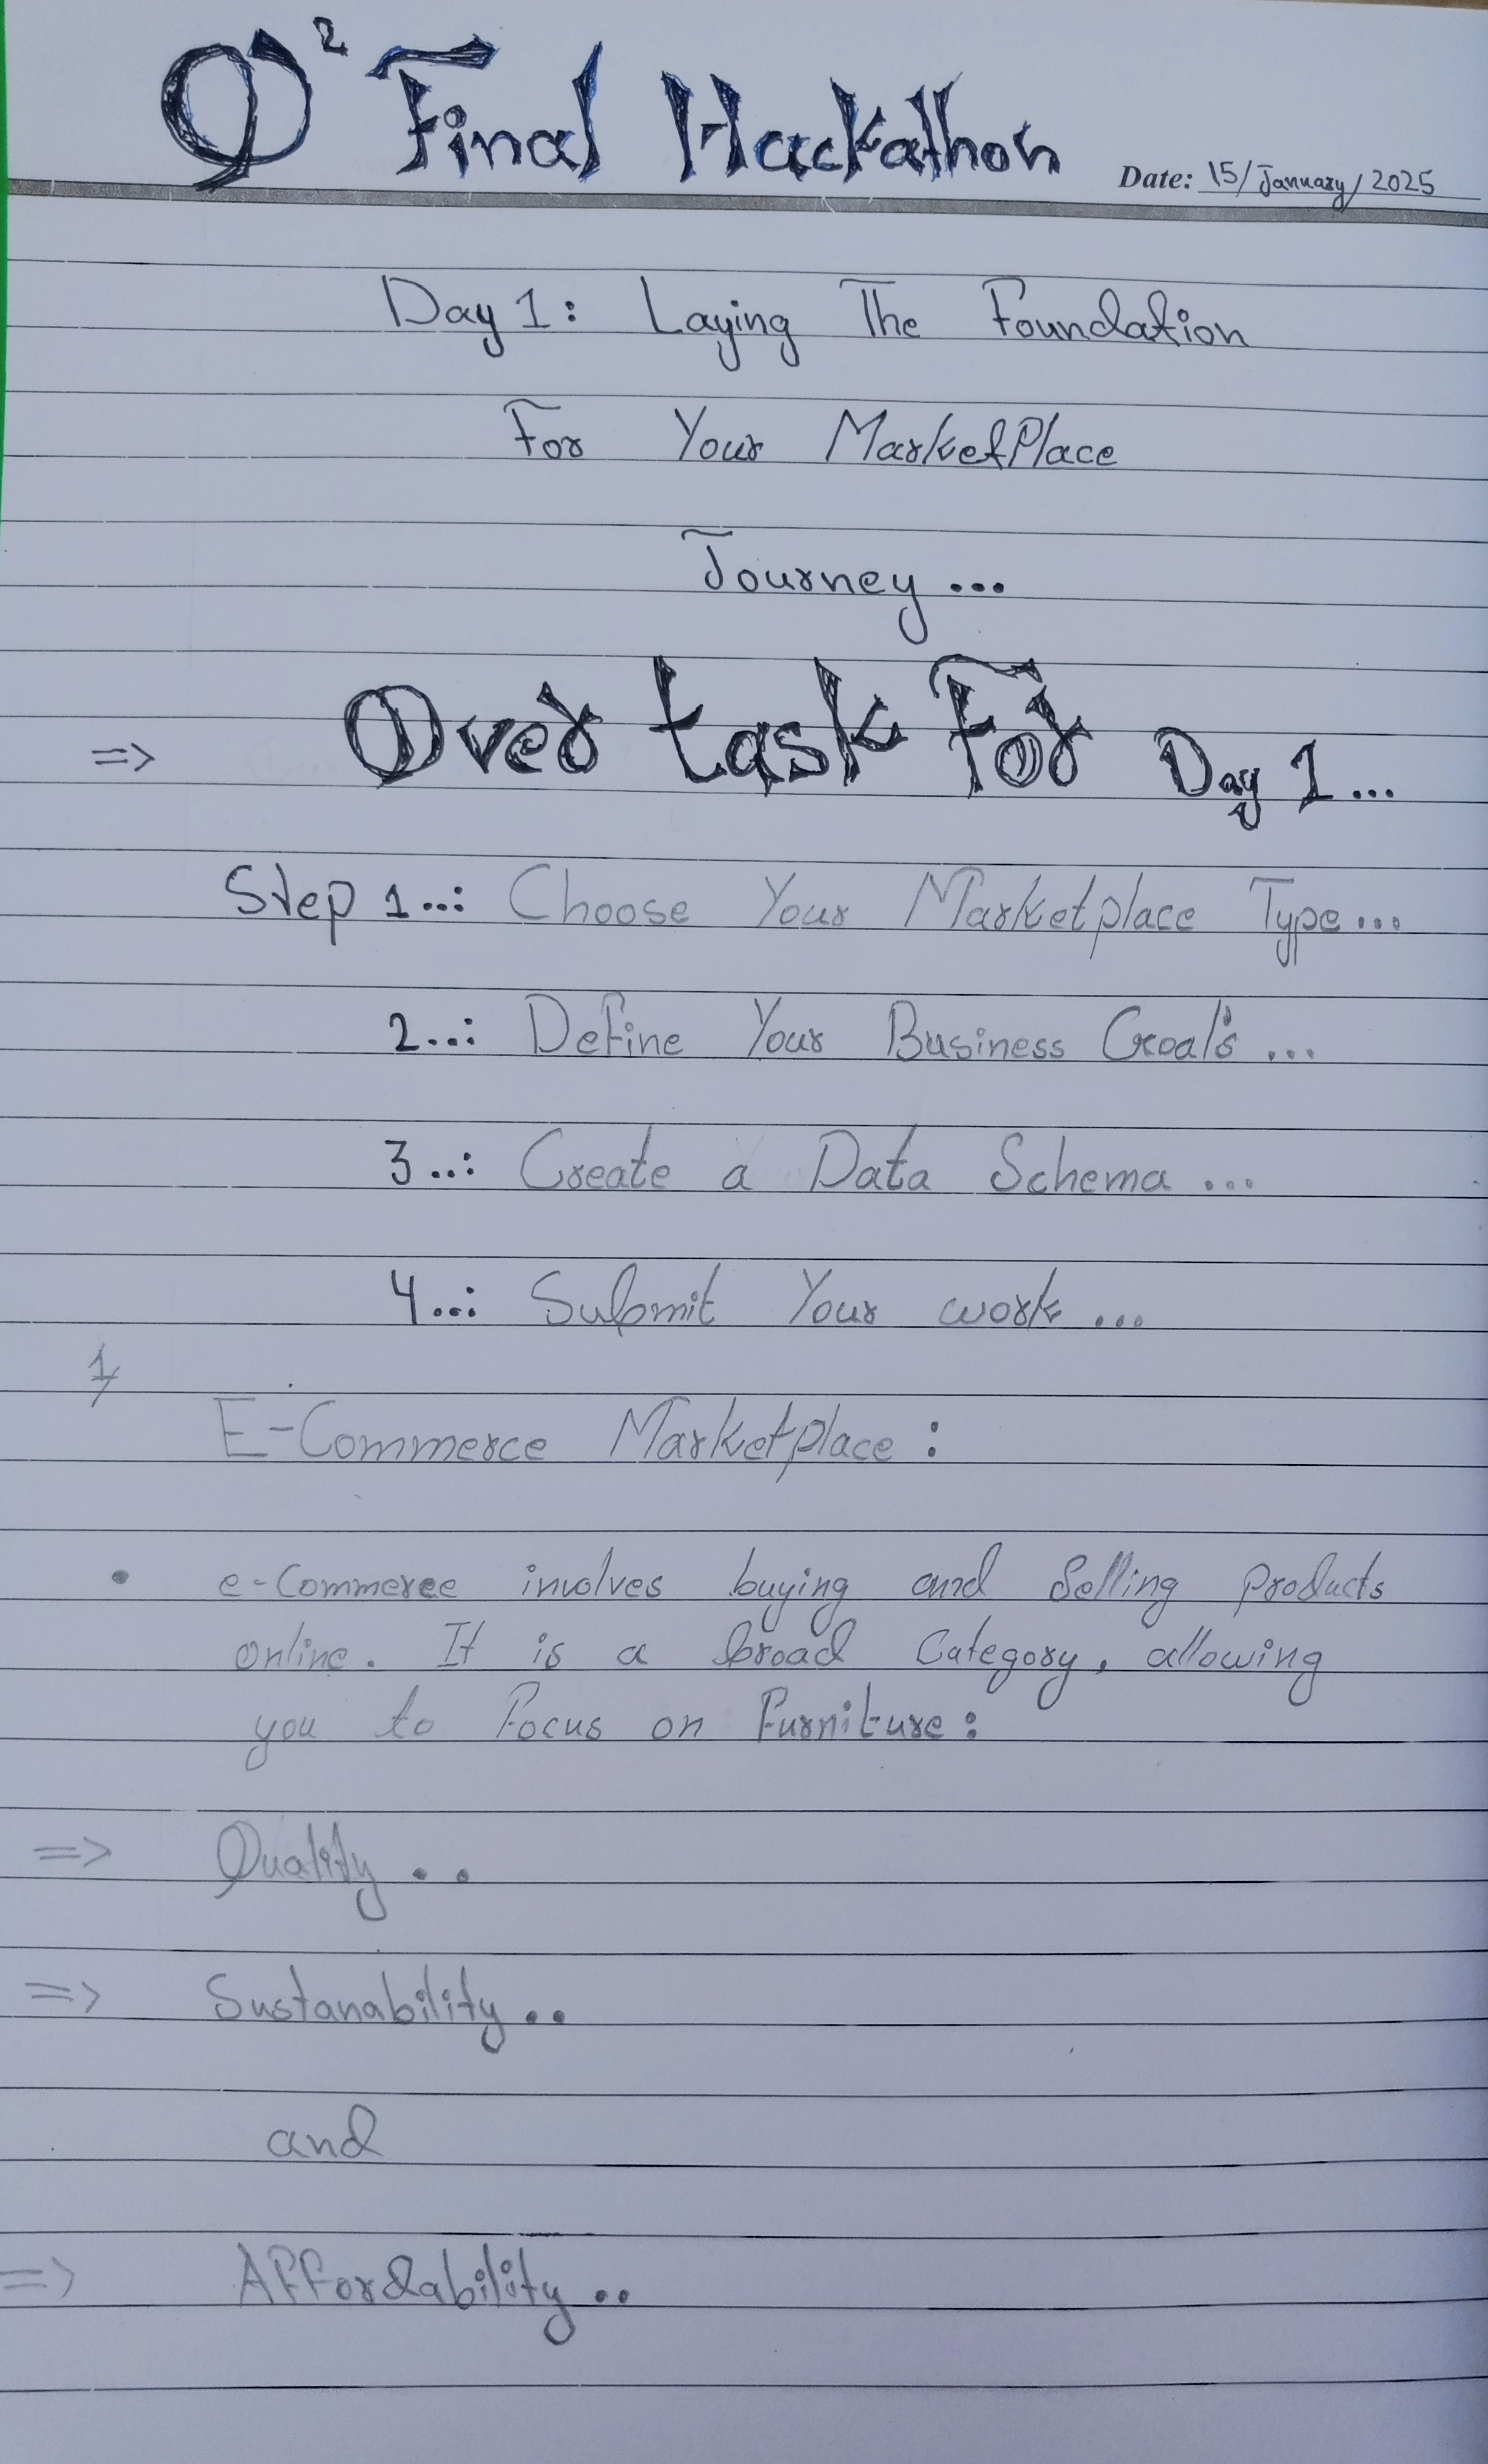 Q² Final Hackathon
Date: 15/January/2025
Day 1: Laying The Foundation
For Your MarketPlace
Journey ...
=> Over task For Day 1 ...
Step 1..: Choose Your Marketplace Type ...
2...: Define Your Business Goal's ...
3..: Create a Data Schema ...
4...: Submit Your work ...
1/
E-Commerce Marketplace :
• e-Commerce involves buying and Selling products
online. It is a broad Category, allowing
you to Focus on Furniture :
=> Quality ..
=> Sustanability ..
and
=> Affordability ..